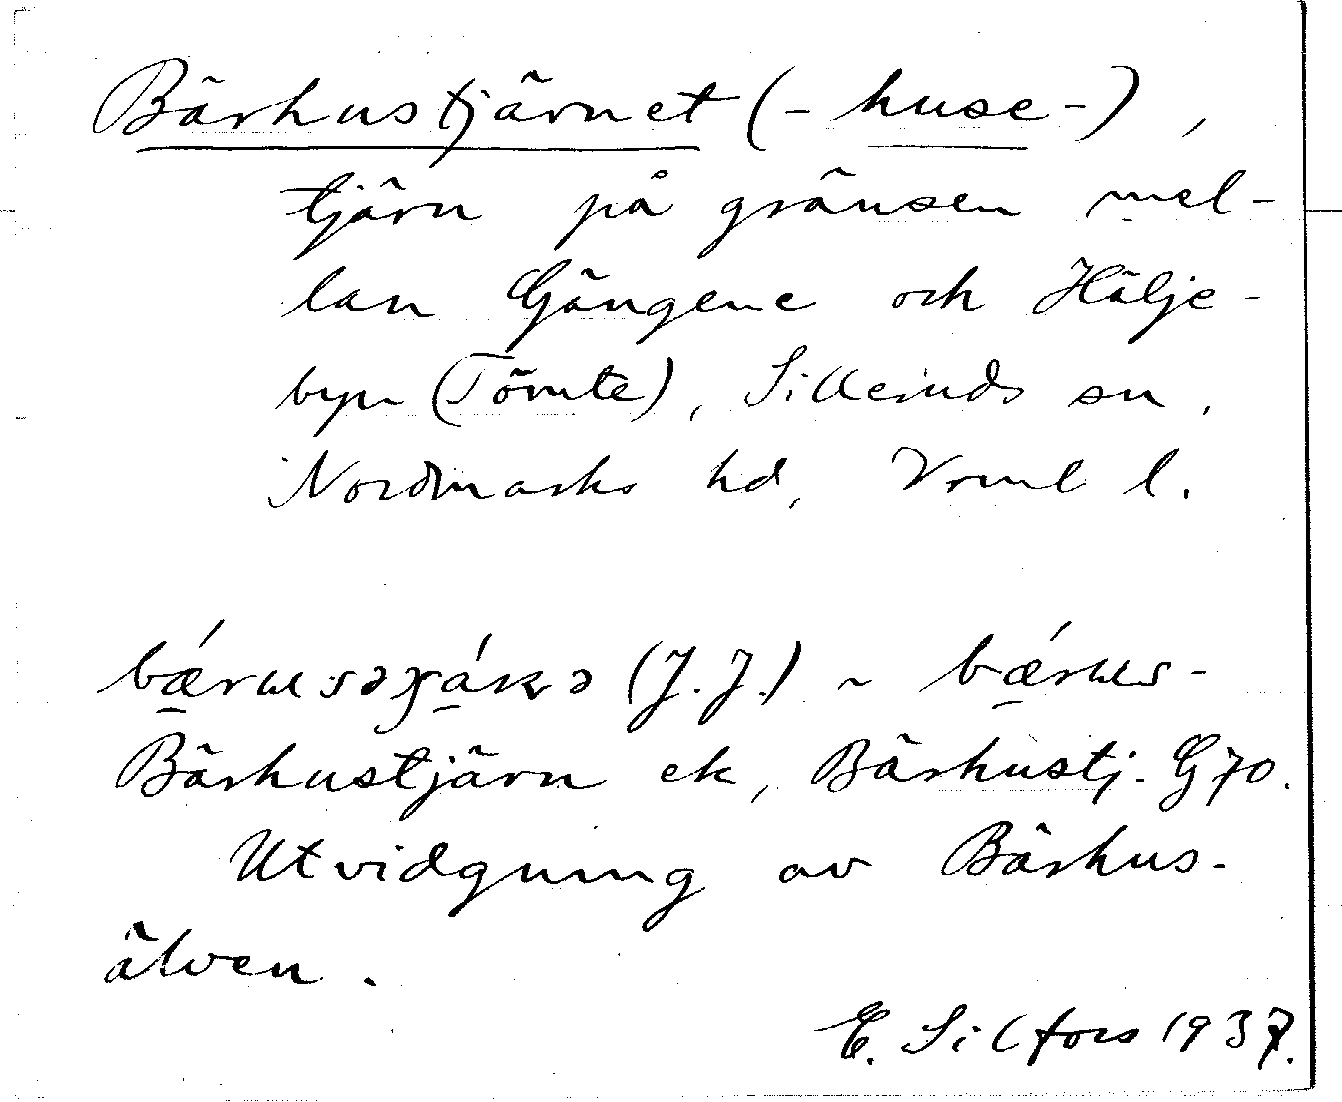 Bärhustjärnet (-huse-),
tjärn på gränsen mel-
lan Gängene och Hälje-
byn (Tömte), Silleruds sn,
Nordmarks hd, Vrml l.
(J.J.) ~
Bärhustjärn ek, Bärhustj. G 70.
Utvidgning av Bärhus-
älven.
E. Silfors 1937.